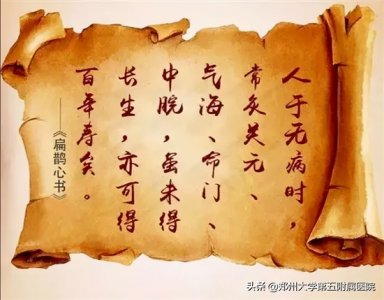 人于无病时，
常灸关元、
气海、命门、
中脘，虽未得
长生，亦可得
百年寿矣。
——《扁鹊心书》
头条 @郑州大学第五附属医院